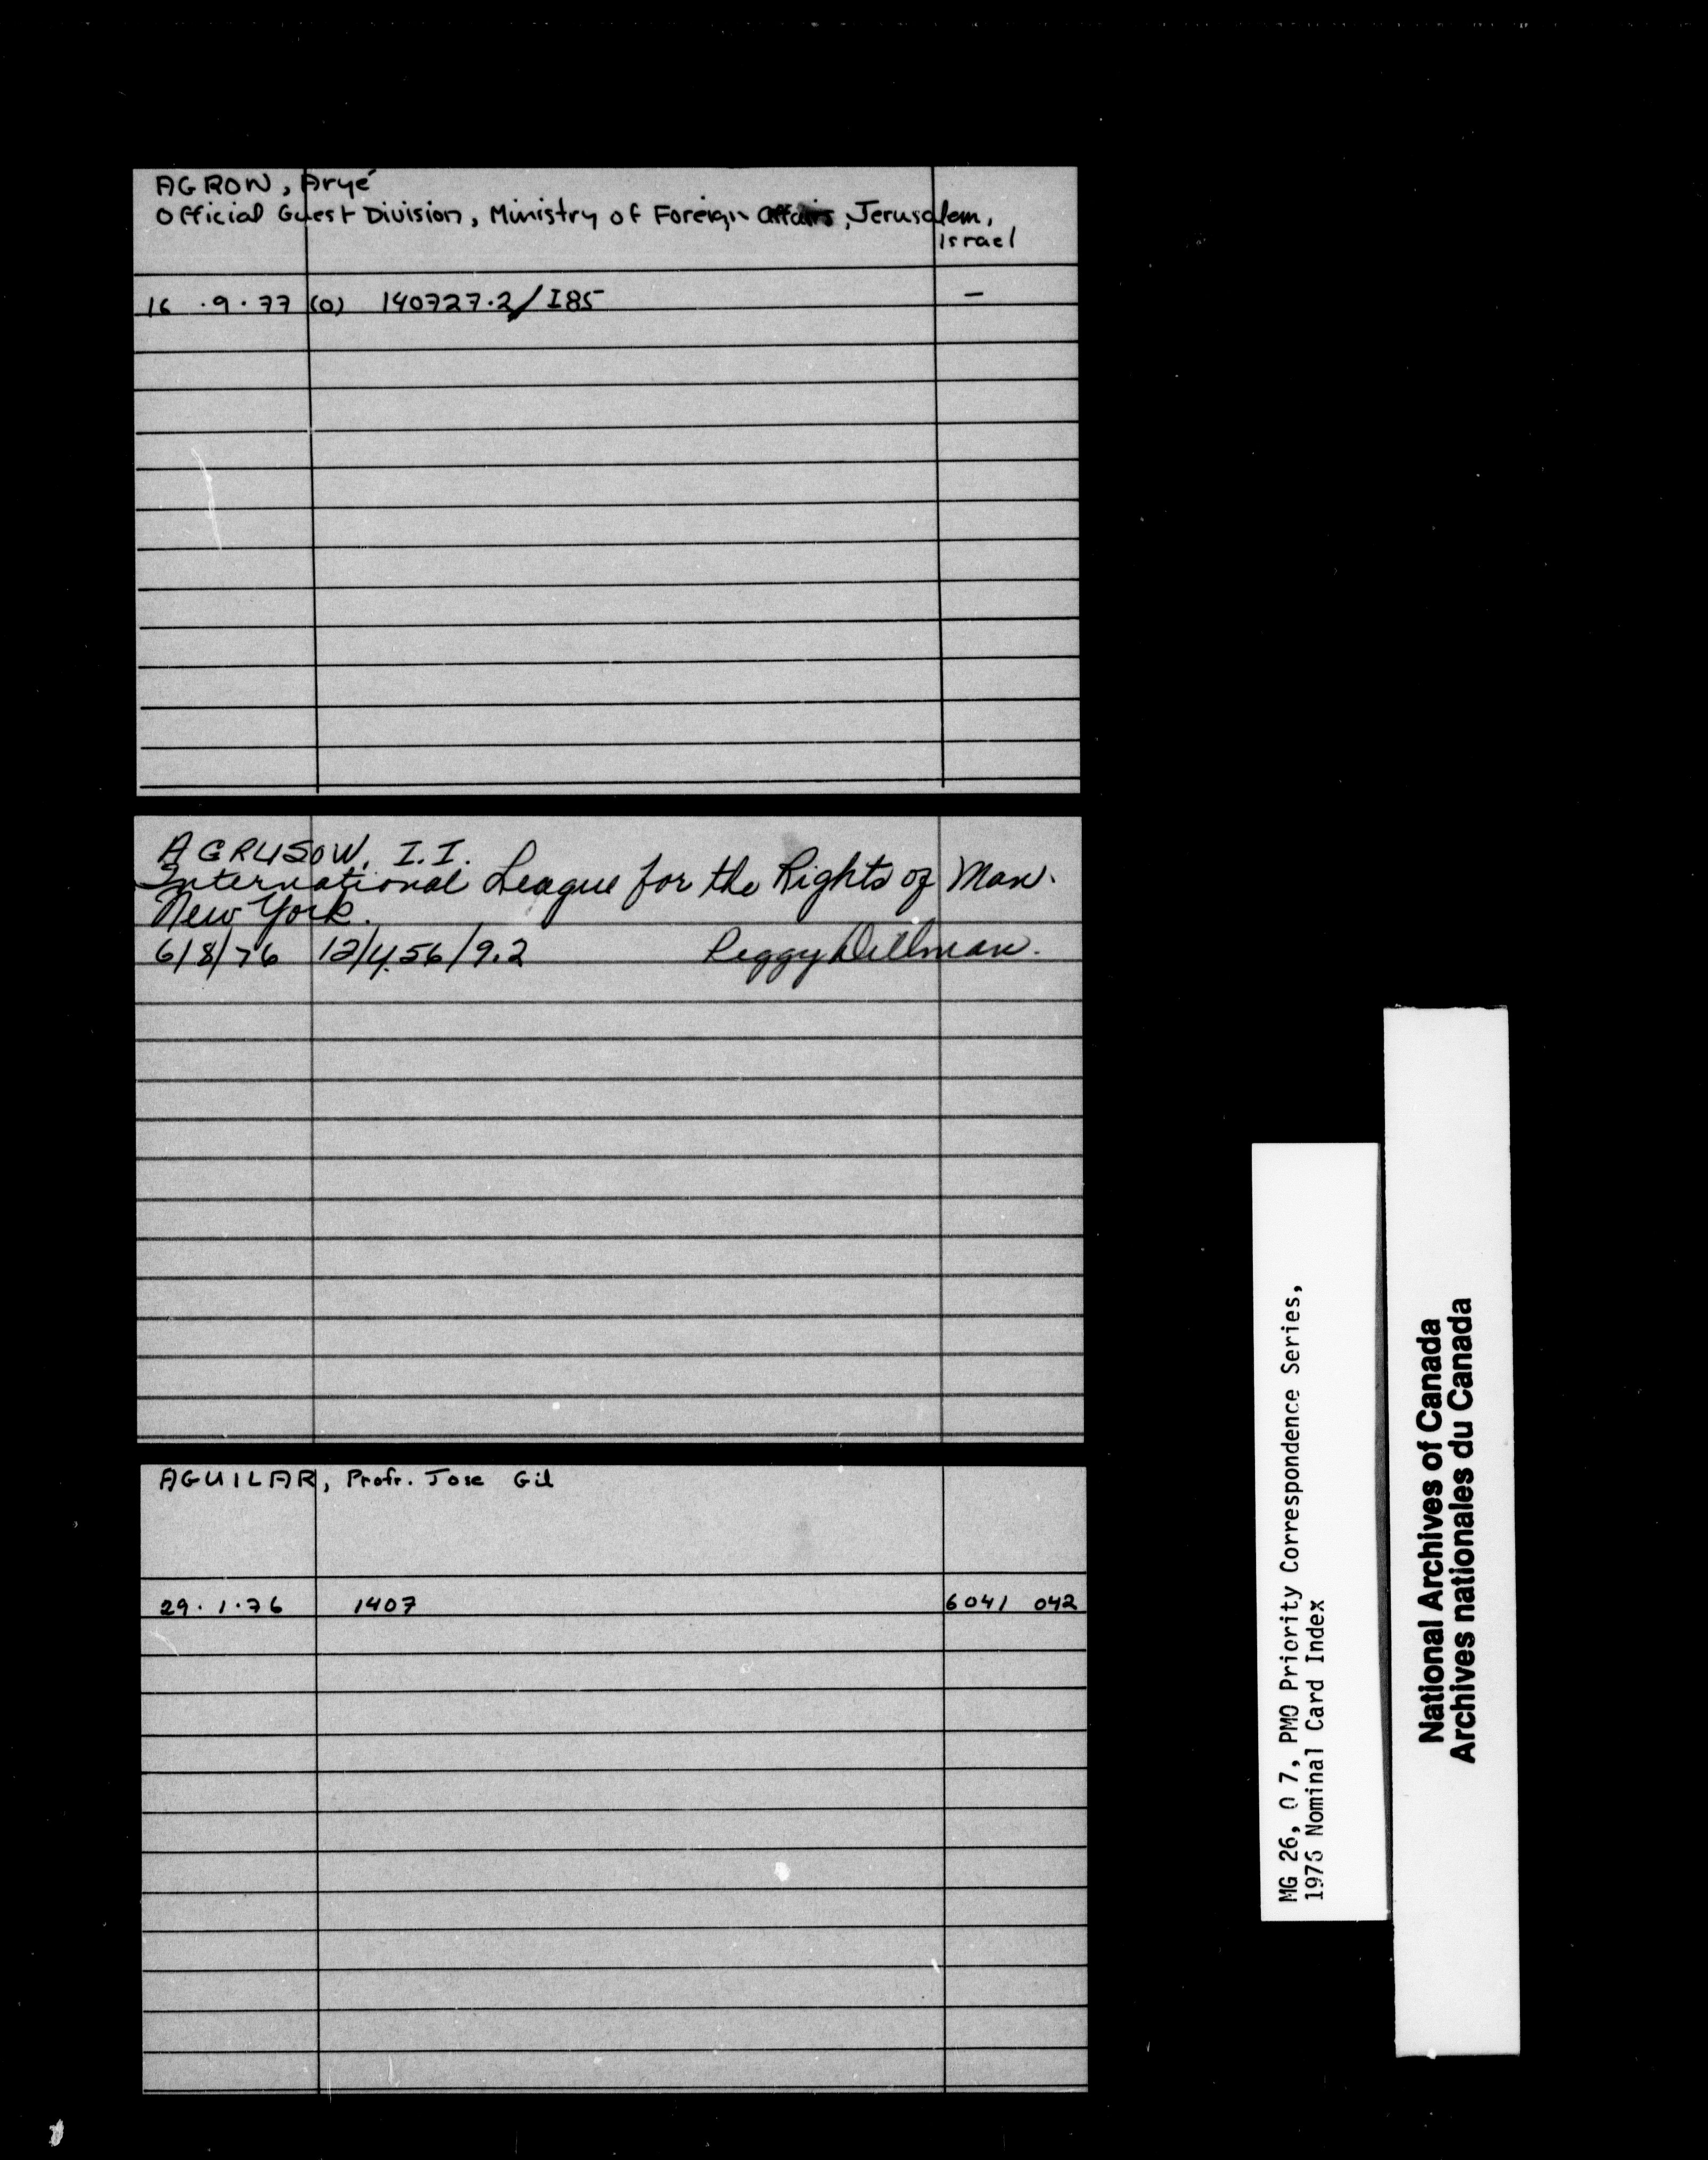 AGRON, Aryé
Official Guest Division, Ministry of Foreign Affairs, Jerusalem,
Israel
16 .9.77 (0) 140727.2/I85 –
AGRUSOW, I.I.
International League for the Rights of Man.
New York.
6/8/76 12/4.56/9.2 Peggy Dillman.
AGUILAR, Profr. Jose Gil
29.1.76 1407 6041 042
MG 26, O 7, PMO Priority Correspondence Series,
1976 Nominal Card Index
National Archives of Canada
Archives nationales du Canada